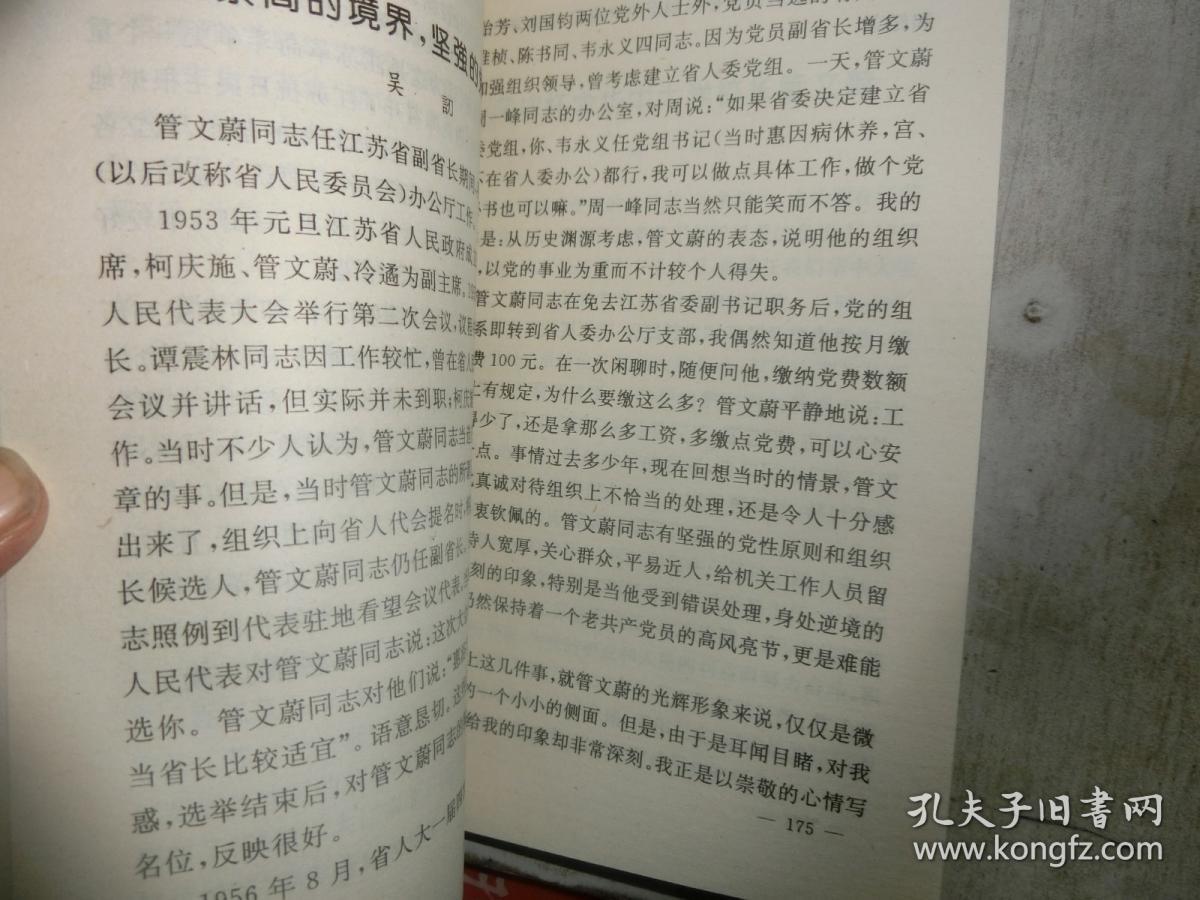 的境界，坚强的
吴 訒
管文蔚同志任江苏省副省长期间
（以后改称省人民委员会）办公厅工作
1953年元旦江苏省人民政府成
席，柯庆施、管文蔚、冷遹为副主席。
人民代表大会举行第二次会议，议
长。谭震林同志因工作较忙，曾在省
会议并讲话，但实际并未到职；柯庆
作。当时不少人认为，管文蔚同志当
章的事。但是，当时管文蔚同志的所
出来了，组织上向省人代会提名时，
长候选人，管文蔚同志仍任副省长。
志照例到代表驻地看望会议代表，
人民代表对管文蔚同志说：这次大
选你。管文蔚同志对他们说：“
当省长比较适宜”。语意恳切。这
惑，选举结束后，对管文蔚同志的
名位，反映很好。
1956年8月，省人大一届
治芳、刘国钧两位党外人士外，党员当选的
桢、陈书同、韦永义四同志。因为党员副省长增多，为
强组织领导，曾考虑建立省人委党组。一天，管文蔚
周一峰同志的办公室，对周说：“如果省委决定建立省
委党组，你、韦永义任党组书记（当时惠因病休养，宫、
不在省人委办公）都行，我可以做点具体工作，做个党
书也可以嘛。”周一峰同志当然只能笑而不答。我的
是：从历史渊源考虑，管文蔚的表态，说明他的组织
，以党的事业为重而不计较个人得失。
管文蔚同志在免去江苏省委副书记职务后，党的组
系即转到省人委办公厅支部，我偶然知道他按月缴
费100元。在一次闲聊时，随便问他，缴纳党费数额
上有规定，为什么要缴这么多？管文蔚平静地说：工
少了，还是拿那么多工资，多缴点党费，可以心安
点。事情过去多少年，现在回想当时的情景，管文
真诚对待组织上不恰当的处理，还是令人十分感
衷钦佩的。管文蔚同志有坚强的党性原则和组织
待人宽厚，关心群众，平易近人，给机关工作人员留
刻的印象，特别是当他受到错误处理，身处逆境的
仍然保持着一个老共产党员的高风亮节，更是难能
上这几件事，就管文蔚的光辉形象来说，仅仅是微
一个小小的侧面。但是，由于是耳闻目睹，对我
给我的印象却非常深刻。我正是以崇敬的心情写
— 175 —
孔夫子旧书网
www.kongfz.com